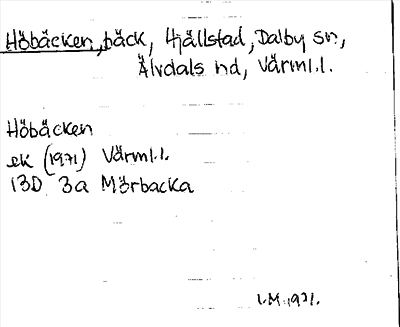 Höbäcken, bäck, Hjällstad, Dalby sn,
Älvdals hd, Värml.l.
Höbäcken
ek (1971) Värml.l.
13D 3a Mörbacka
L.M. 1971.